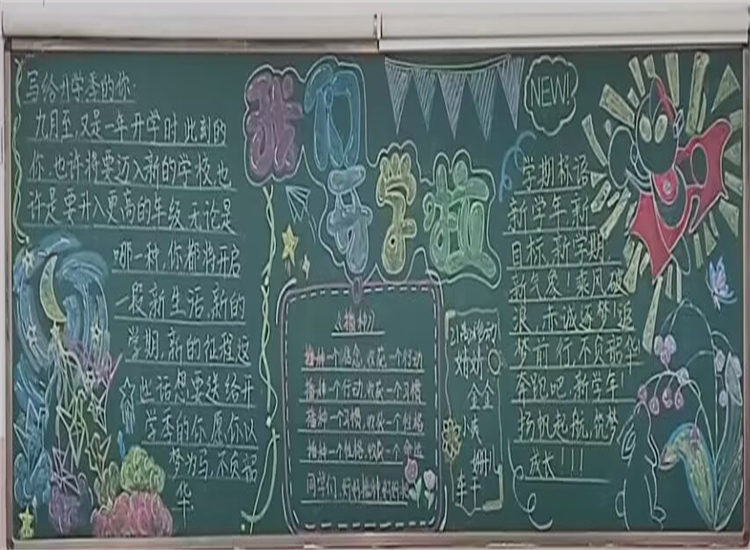 写给升学季的你:
九月至,又是一年开学时此刻的
你,也许将要迈入新的学校也
许是要升入更高的年级,无论是
哪一种,你都将开启
一段新生活,新的
学期,新的征程这
些话想要送给开
学季的你愿你以
梦为马,不负韶
华
我们
开学啦
《播种》
播种一个信念,收获一个行动
播种一个行动,收获一个习惯
播种一个习惯,收获一个性格
播种一个性格,收获一个命运
同学们,好好播种好好
NEW!
学期标语
新学年,新
目标,新学期
新气象!乘风破
浪,赤诚逐梦!追
梦前行,不负韶华
奔跑吧,新学年!
扬帆起航,筑梦
成长!!!